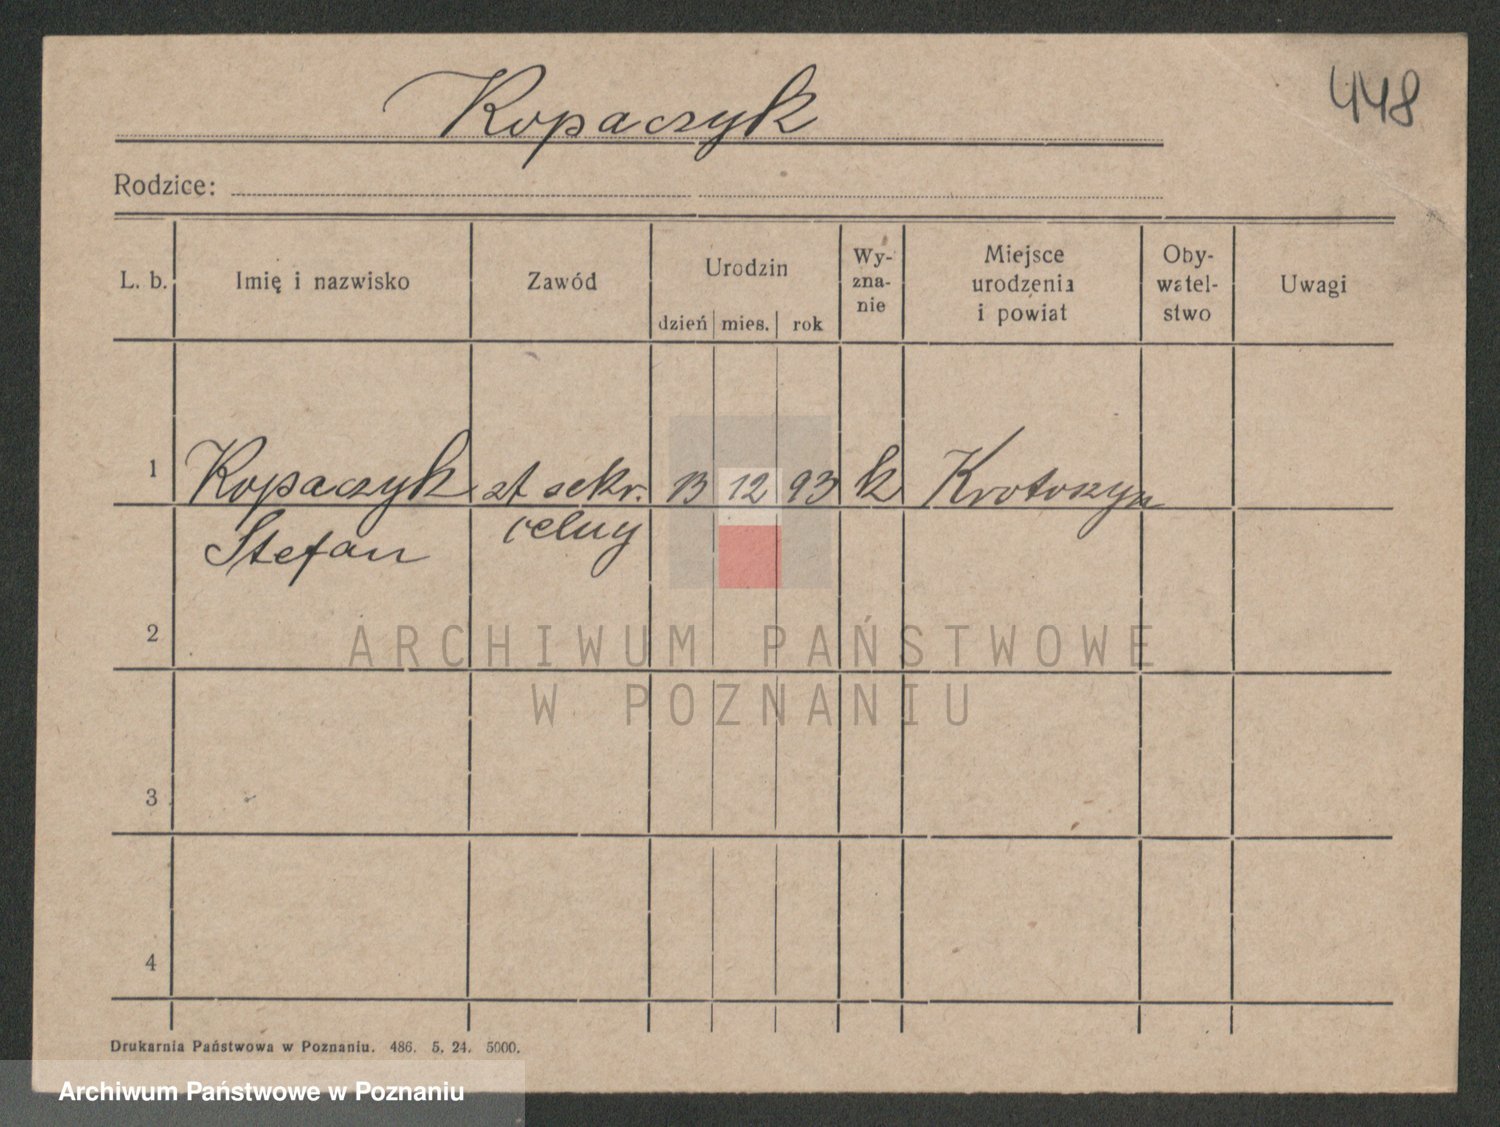 448
Kopaczyk
Rodzice:
L. b. Imię i nazwisko Zawód Urodzin dzień mies. rok Wy- zna- nie Miejsce urodzenia i powiat Oby- watel- stwo Uwagi
1 Kopaczyk st sekr. 13 12 93 k Krotoszyn
Stefan celny
2
3
4
ARCHIWUM PAŃSTWOWE
W POZNANIU
Drukarnia Państwowa w Poznaniu. 486. 5. 24. 5000.
Archiwum Państwowe w Poznaniu